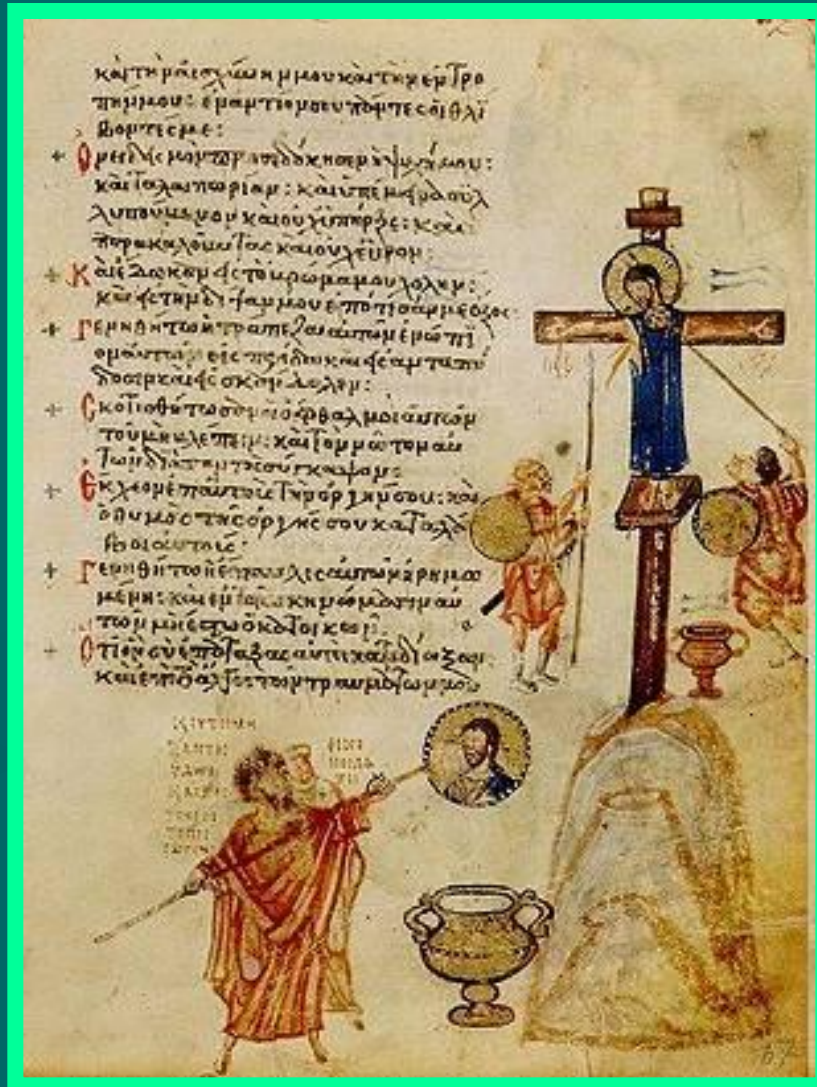 καὶ τὴν αἰσχύνην μου καὶ τὴν ἐντρο
πήν μου: ἐναντίον σου πάντες οἱ θλί
βοντές με:
Ὀνειδισμὸν προσεδόκησεν ἡ ψυχή μου:
καὶ ταλαιπωρίαν: καὶ ὑπέμεινα συλ
λυπούμενον καὶ οὐχ ὑπῆρξε: καὶ
παρακαλοῦντας καὶ οὐχ εὗρον:
Καὶ ἔδωκαν εἰς τὸ βρῶμα μου χολήν:
καὶ εἰς τὴν δίψαν μου ἐπότισάν με ὄξος:
Γενηθήτω ἡ τράπεζα αὐτῶν ἐνώπι
ον αὐτῶν εἰς παγίδα καὶ εἰς ἀνταπό
δοσιν καὶ εἰς σκάνδαλον:
Σκοτισθήτωσαν οἱ ὀφθαλμοὶ αὐτῶν
τοῦ μὴ βλέπειν: καὶ τὸν νῶτον αὐ
τῶν διὰ παντὸς σύγκαμψον:
Ἔκχεον ἐπ' αὐτοὺς τὴν ὀργήν σου: καὶ
ὁ θυμὸς τῆς ὀργῆς σου καταλά
βοι αὐτούς:
Γενηθήτω ἡ ἔπαυλις αὐτῶν ἠρημω
μένη: καὶ ἐν τοῖς σκηνώμασιν αὐ
τῶν μὴ ἔστω ὁ κατοικῶν:
Ὅτι ὃν σὺ ἐπάταξας αὐτοὶ κατεδίωξαν:
καὶ ἐπὶ τὸ ἄλγος τῶν τραυμάτων μου
67